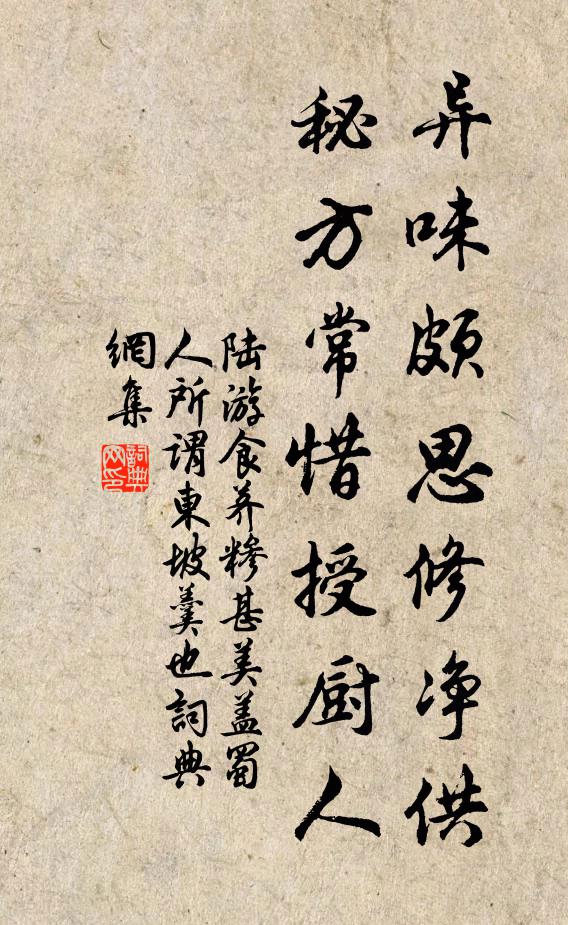 异味颇思修净供
秘方常惜授厨人
陆游食荠糁甚美盖蜀
人所谓東坡羹也詞典
網集
詞典
网印